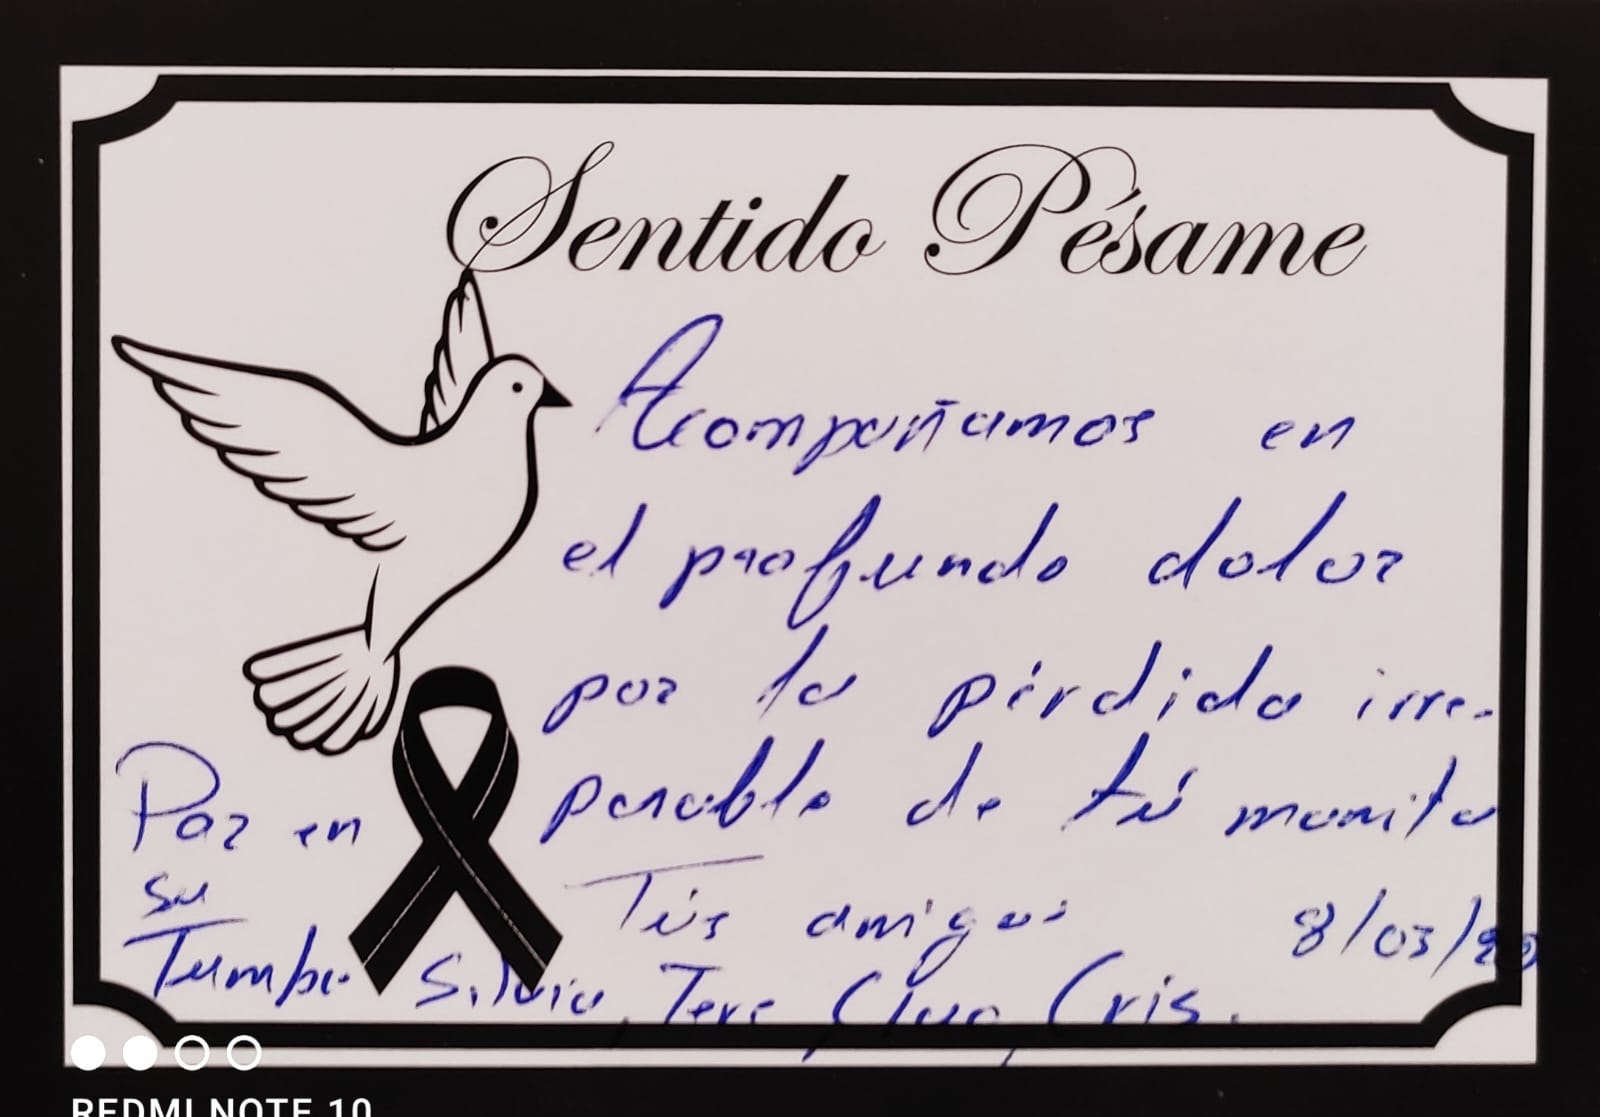 Sentido Pésame
Acompañamos en
el profundo dolor
por la pérdida irre-
parable de tú manita
Paz en
su
Tumba
Tús amigas
8/03/
Silvia, Tere Cris.
REDMI NOTE 10